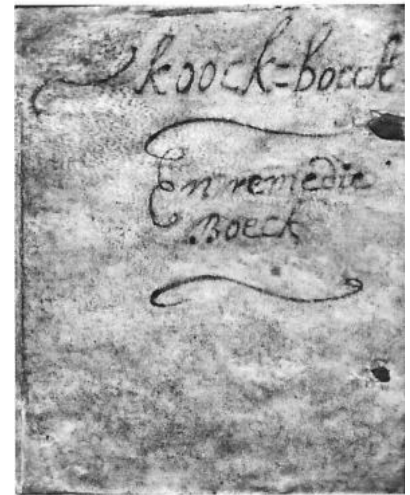 koock=boeck
En remedie
Boeck